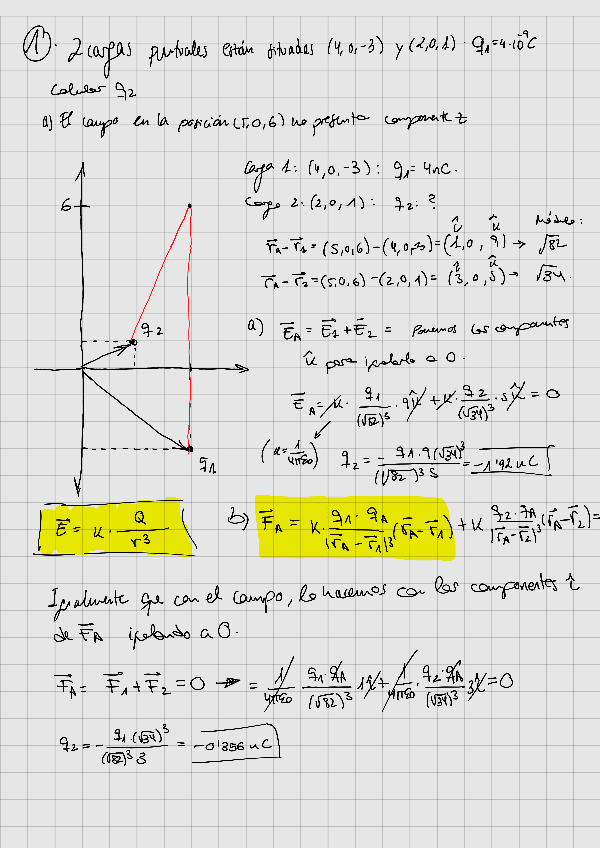 1). 2 cargas puntuales están situadas (4,0,-3) y (2,0,1). q₁=4·10⁻⁹C
Calcular q₂
a) El campo en la posición (5,0,6) no presenta componente z
Carga 1: (4,0,-3): q₁= 4nC.
6
Carga 2: (2,0,1): q₂: ?
Módulo:
r⃗A-r⃗1=(5,0,6)-(4,0,-3)=(1,0,9) → √82
î k̂
r⃗A-r⃗2=(5,0,6)-(2,0,1)=(3,0,5)→ √34.
î k̂
q₂
a) E⃗A = E⃗1+E⃗2 = Ponemos los componentes
k̂ para igualarlo a 0.
E⃗A=K· q₁/(√82)³ ·9k̂ + K· q₂/(√34)³ ·5k̂ = 0
(K=1/4πε0) q₂ = - q₁·9(√34)³/(√82)³5 = -1'92 nC
q₁
E⃗ = K· Q/r³
b) F⃗A = K· q₁·qA/|r⃗A-r⃗1|³ (r⃗A-r⃗1) + K q₂·qA/|r⃗A-r⃗2|³ (r⃗A-r⃗2)=
Igualmente que con el campo, lo hacemos con los componentes î
de F⃗A igualando a 0.
F⃗A= F⃗1+F⃗2=0 → = 1/4πε0 q₁·qA/(√82)³ 1î + 1/4πε0 · q₂·qA/(√34)³ 3î=0
q₂ = - q₁·(√34)³/(√82)³3 = -0'356 nC